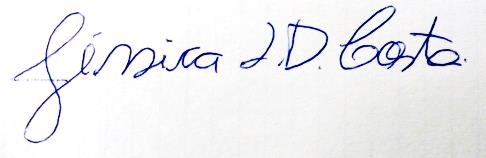 Jéssica L.D. Costa.